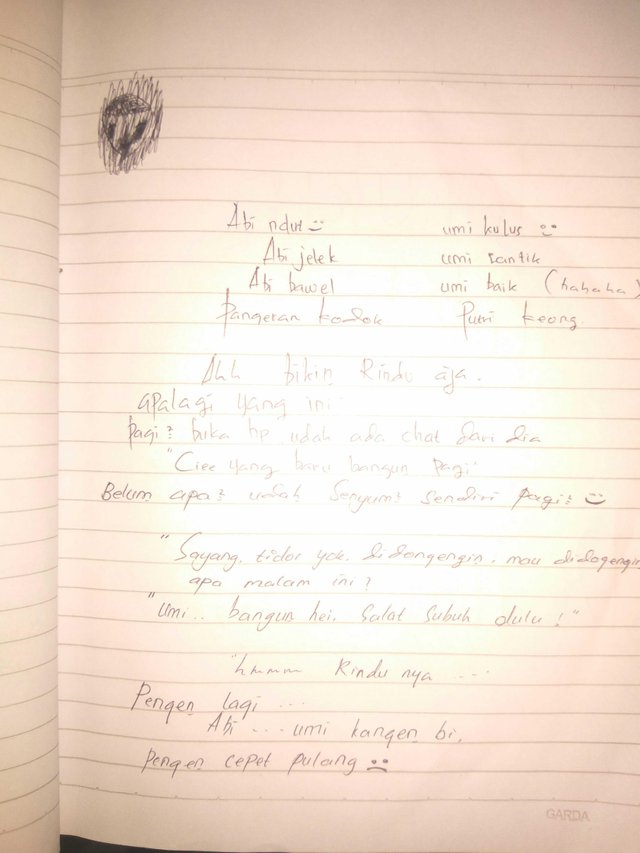 Abi ndut :) umi kulus :)
Abi jelek umi santik
Abi bawel umi baik (hahaha)
Pangeran kodok Putri keong
Ahh bikin Rindu aja.
apalagi yang ini
pagi² buka hp udah ada chat dari dia
"Ciee yang baru bangun pagi"
Belum apa² udah senyum² sendiri pagi² :)
"Sayang, tidor yok, didongengin, mau didogengin
apa malam ini?
"Umi.. bangun hei, Salat Subuh dulu!"
"hmmm Rindu nya ....
Pengen lagi ...
Abi ... umi kangen bi,
pengen cepet pulang :(
GARDA